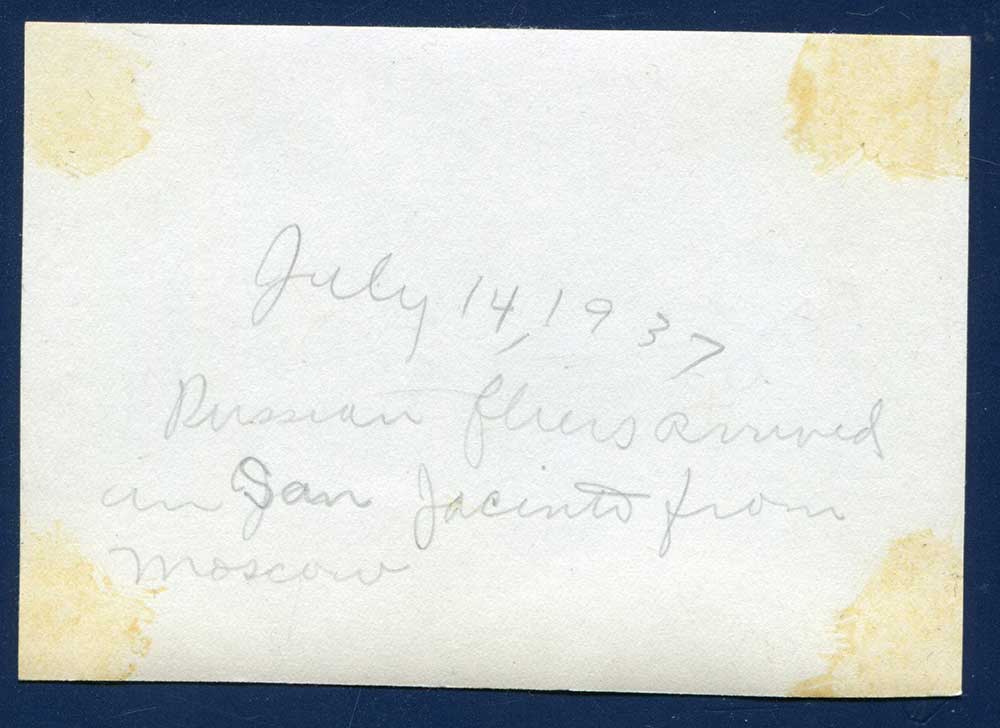 July 14, 1937
Russian fliers arrived
in San Jacinto from
Moscow